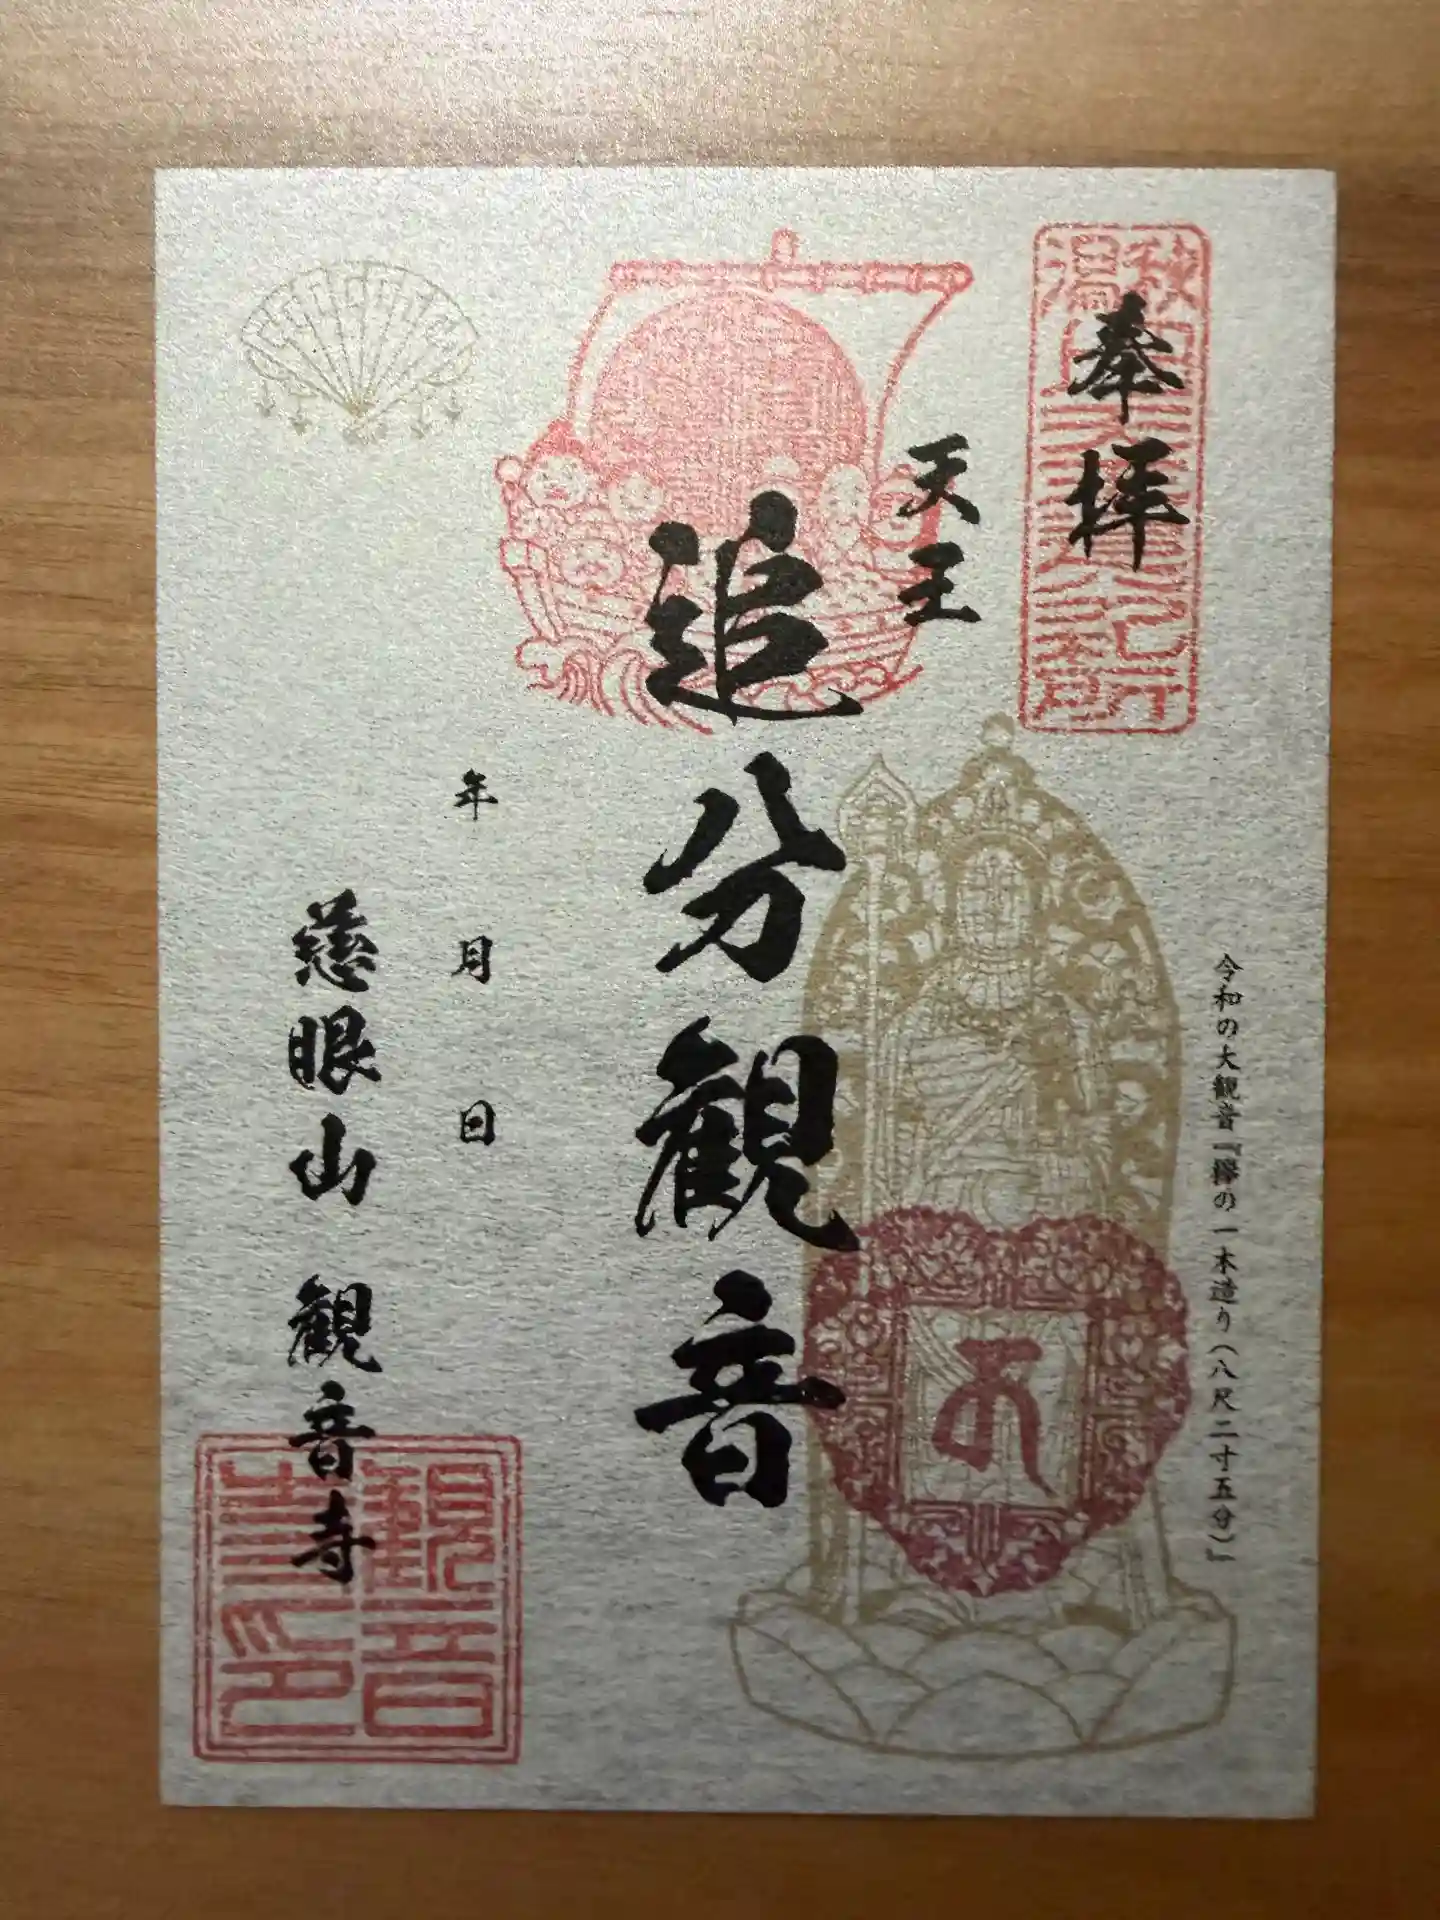 奉拝
令和の大観音『欅の一木造り(八尺二寸五分)』
天王
追分観音
年 月 日
慈眼山 観音寺
觀音
寺印